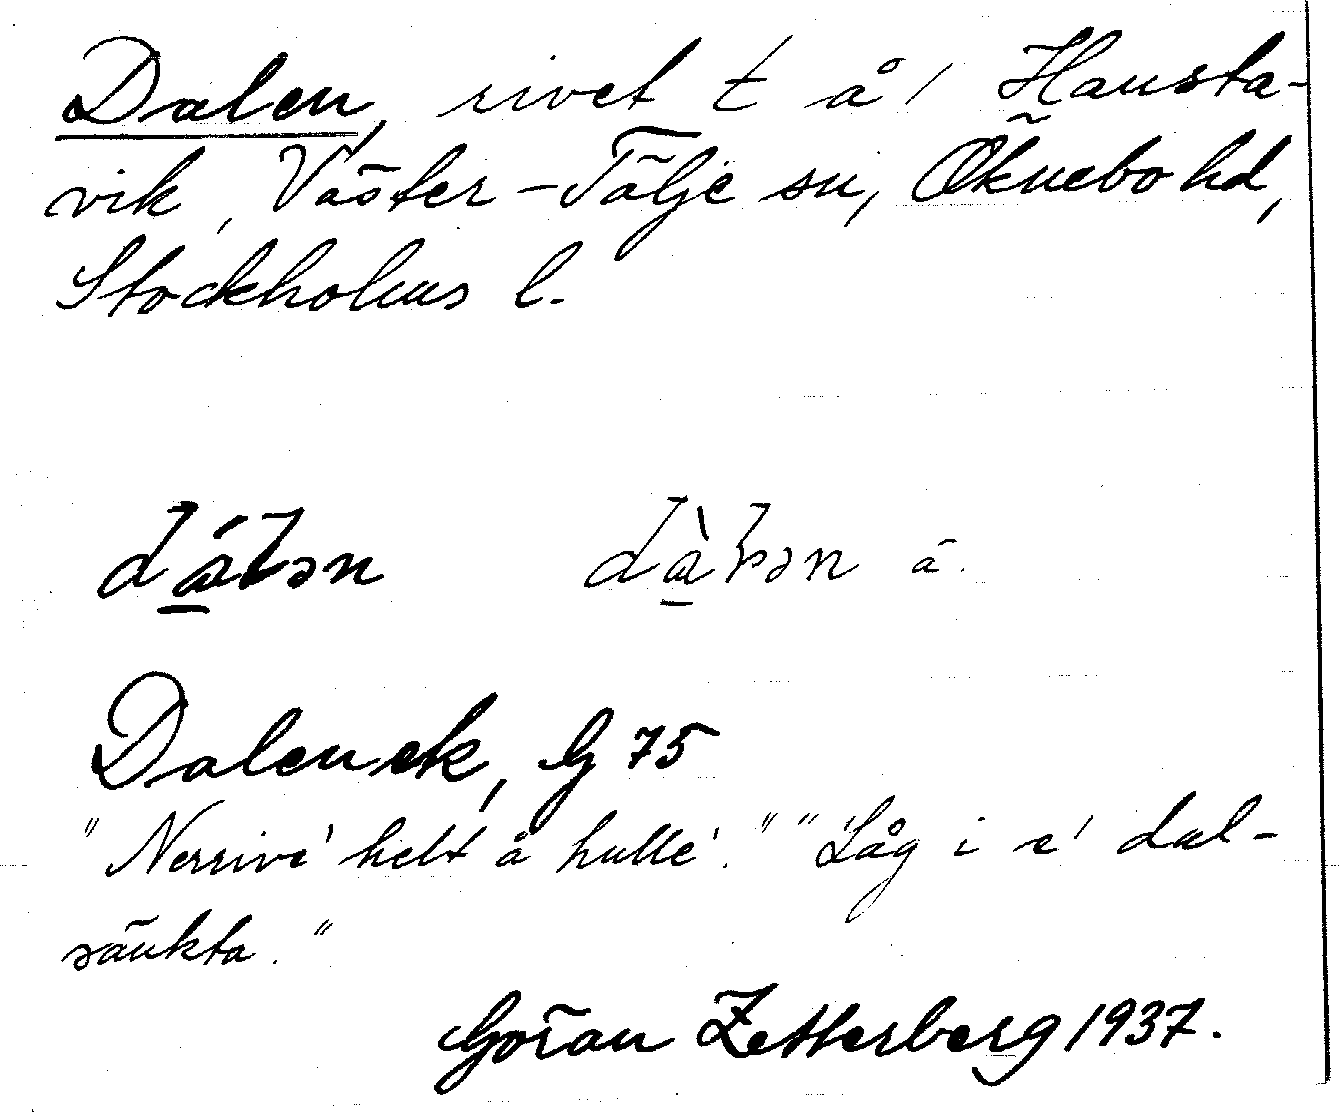 Dalen, rivet t å / Hansta-
vik, Väster-Tälje sn, Öknebo hd,
Stockholms l.
dálən dàlən ä.
Dalen ek, G 75
"Nerrive' helt å hållе'." "Låg i e' dal-
sänkta."
Göran Zetterberg 1937.